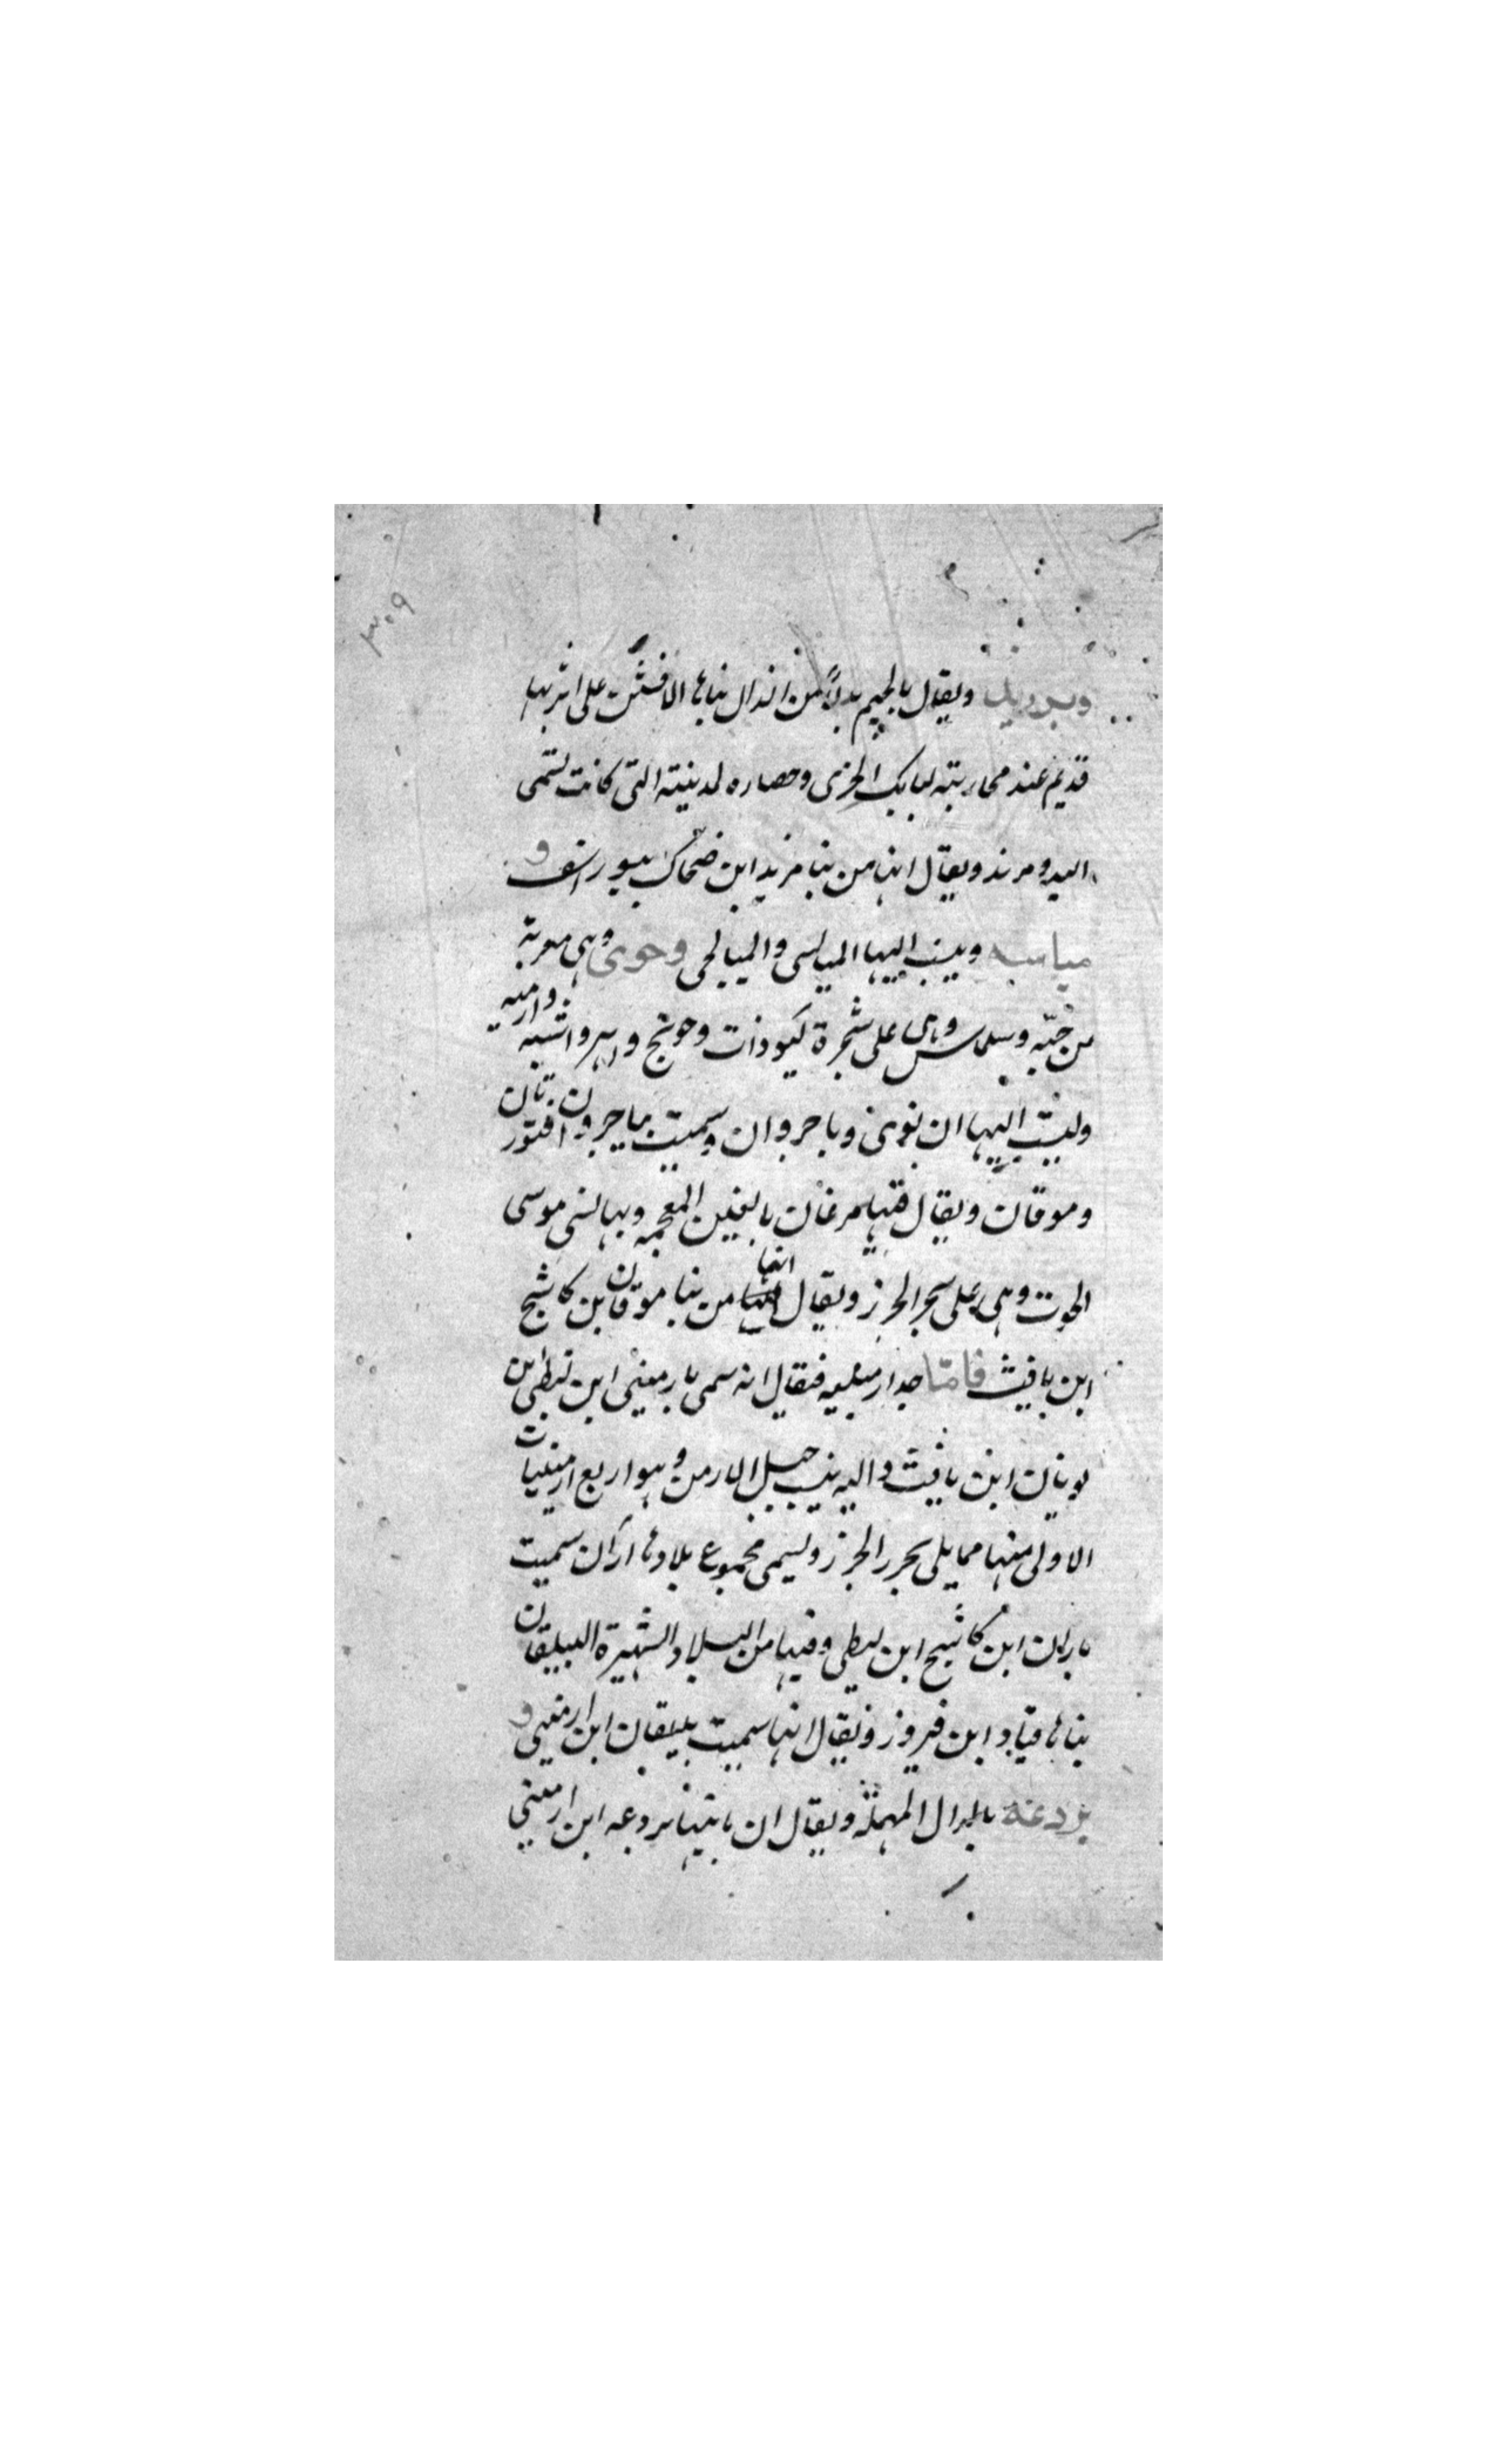 ٣٠٩
وبرزند ويقال بالجيم بدلا من الدال بناها الافشين على اثر بها
قديم عند محاربته لبابك الخرمى وحصاره لمدينته التى كانت تسمى
البد ومرند ويقال انها من بنا مرند ابن ضحاك بيوراسف و
ميانه وينسب اليها الميانسى والميالجى وخوى وهى معربة
من خبّه وسلماس وهى على شجرة كبوذات وخونج و واشنه وارميه
وينسب اليها ان نومى وباجروان وسميت بباجروان
وموقان ويقال فيها مرغان بالغين المعجمه وبها نسى موسى
الحوت وهى على بحر الخزر ويقال انها من بنا موقان بن كاشح
ابن يافث فامّا حد ارمينيه فيقال انه سمى بارمينى ابن لنطى ابن
يونان ابن يافث واليه ينسب جبل الارمن وهو اربع ارمينيات
الاولى منها مما يلى بحر الخزر ويسمى مجموع بلادها ارّان سميت
باران ابن كاشح ابن لنطى وفيها من البلاد الشهيرة البيلقان
بناها قباد ابن فيروز ويقال انها سميت ببيلقان ابن ارمينى و
بردعه بالدال المهملة ويقال ان بانيها بردعه ابن ارمينى